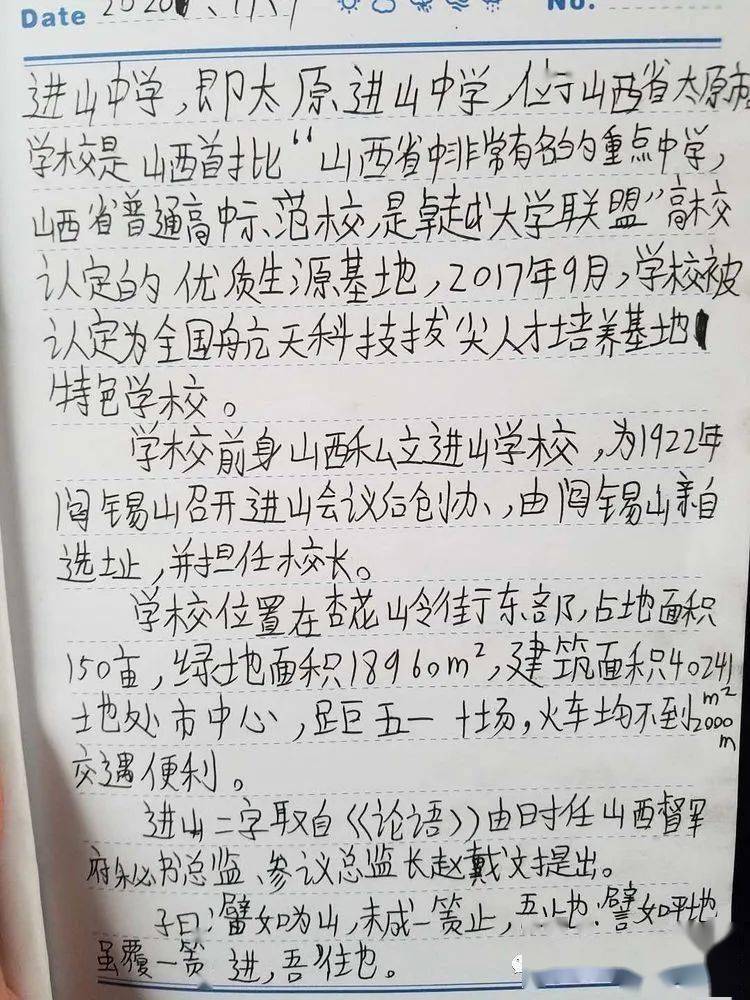 Date 2020 No.
进山中学,即太原进山中学,位于山西省太原市
学校是山西首批“山西省中非常有名的重点中学,
山西省普通高中示范校,是卓越大学联盟”高校
认定的优质生源基地,2017年9月,学校被
认定为全国航天科技拔尖人才培养基地
特色学校。
学校前身山西私立进山学校,为1922年
阎锡山召开进山会议后创办,由阎锡山亲自
选址,并担任校长。
学校位置在杏花岭街东部,占地面积
150亩,绿地面积18960m²,建筑面积40241
m²
地处市中心,距五一广场,火车均不到2000
m
交通便利。
进山二字取自《论语》由时任山西督军
府秘书总监、参议总监长赵戴文提出。
子曰:譬如为山,未成一篑止,吾止也:譬如平地
虽覆一篑 进,吾往也。